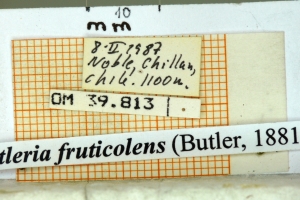 10
mm
8-II 1987
Noble, Chillan,
Chile. 1100m.
OM 39.813
tleria fruticolens (Butler, 1881